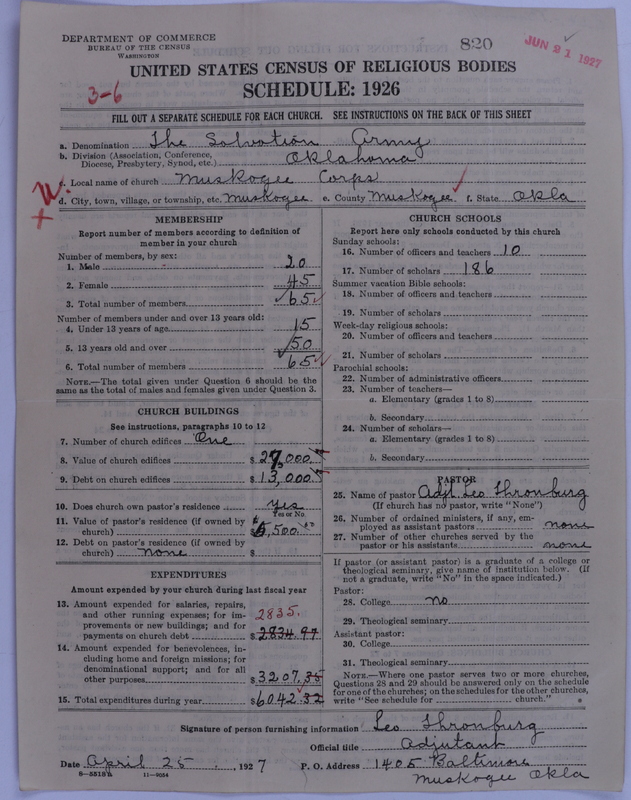 DEPARTMENT OF COMMERCE
BUREAU OF THE CENSUS
WASHINGTON
820
JUN 21 1927
UNITED STATES CENSUS OF RELIGIOUS BODIES
SCHEDULE: 1926
3-6
FILL OUT A SEPARATE SCHEDULE FOR EACH CHURCH. SEE INSTRUCTIONS ON THE BACK OF THIS SHEET
a. Denomination The Salvation Army
b. Division (Association, Conference, Diocese, Presbytery, Synod, etc.) Oklahoma
c. Local name of church Muskogee Corps
d. City, town, village, or township, etc. Muskogee e. County Muskogee f. State Okla
MEMBERSHIP
Report number of members according to definition of
member in your church
Number of members, by sex:
1. Male 20
2. Female 45
3. Total number of members 65
Number of members under and over 13 years old:
4. Under 13 years of age 15
5. 13 years old and over 50
6. Total number of members 65
NOTE.—The total given under Question 6 should be the
same as the total of males and females given under Question 3.
CHURCH BUILDINGS
See instructions, paragraphs 10 to 12
7. Number of church edifices One
8. Value of church edifices $ 27,000
9. Debt on church edifices $ 13,000
10. Does church own pastor's residence Yes
Yes or No
11. Value of pastor's residence (if owned by
church) $ 5,500.00
12. Debt on pastor's residence (if owned by
church) none $
EXPENDITURES
Amount expended by your church during last fiscal year
13. Amount expended for salaries, repairs,
and other running expenses; for im-
provements or new buildings; and for
payments on church debt 2835. $ 2834.97
14. Amount expended for benevolences, in-
cluding home and foreign missions; for
denominational support; and for all
other purposes $ 3207.35
15. Total expenditures during year $ 6042.32
CHURCH SCHOOLS
Report here only schools conducted by this church
Sunday schools:
16. Number of officers and teachers 10
17. Number of scholars 186
Summer vacation Bible schools:
18. Number of officers and teachers
19. Number of scholars
Week-day religious schools:
20. Number of officers and teachers
21. Number of scholars
Parochial schools:
22. Number of administrative officers
23. Number of teachers—
a. Elementary (grades 1 to 8)
b. Secondary
24. Number of scholars—
a. Elementary (grades 1 to 8)
b. Secondary
PASTOR
25. Name of pastor Adjt. Leo Thronburg
(If church has no pastor, write "None")
26. Number of ordained ministers, if any, em-
ployed as assistant pastors none
27. Number of other churches served by the
pastor or his assistants none
If pastor (or assistant pastor) is a graduate of a college or
theological seminary, give name of institution below. (If
not a graduate, write "No" in the space indicated.)
Pastor:
28. College no
29. Theological seminary
Assistant pastor:
30. College
31. Theological seminary
NOTE.—Where one pastor serves two or more churches,
Questions 28 and 29 should be answered only on the schedule
for one of the churches; on the schedules for the other churches,
write "See schedule for church."
Signature of person furnishing information Leo Thronburg
Official title Adjutant
Date April 25, 1927 P. O. Address 1405 Baltimore
8-5518b 11-9034 Muskogee Okla